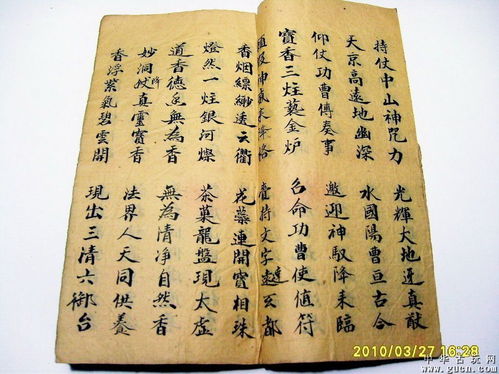 持仗中山神咒力 光輝大地迓真猷
天京高遠地幽深 水國陽曹亘古今
仰仗功曹傳奏事 邀迎神馭降來臨
寶香三炷爇金炉 召命功曹使值符
神 來降格 持文字達玄都
香烟縹緲透云衢 花蕊連開寶相珠
燈然一炷銀河燦 茶菓龍盤現太虛
道香德香無為香 無為清净自然香
妙洞降真靈寶香 法界人天同供養
香浮紫氣碧雲開 現出三清六御台
2010/03/27 16:28
中华古玩网
www.gucn.com